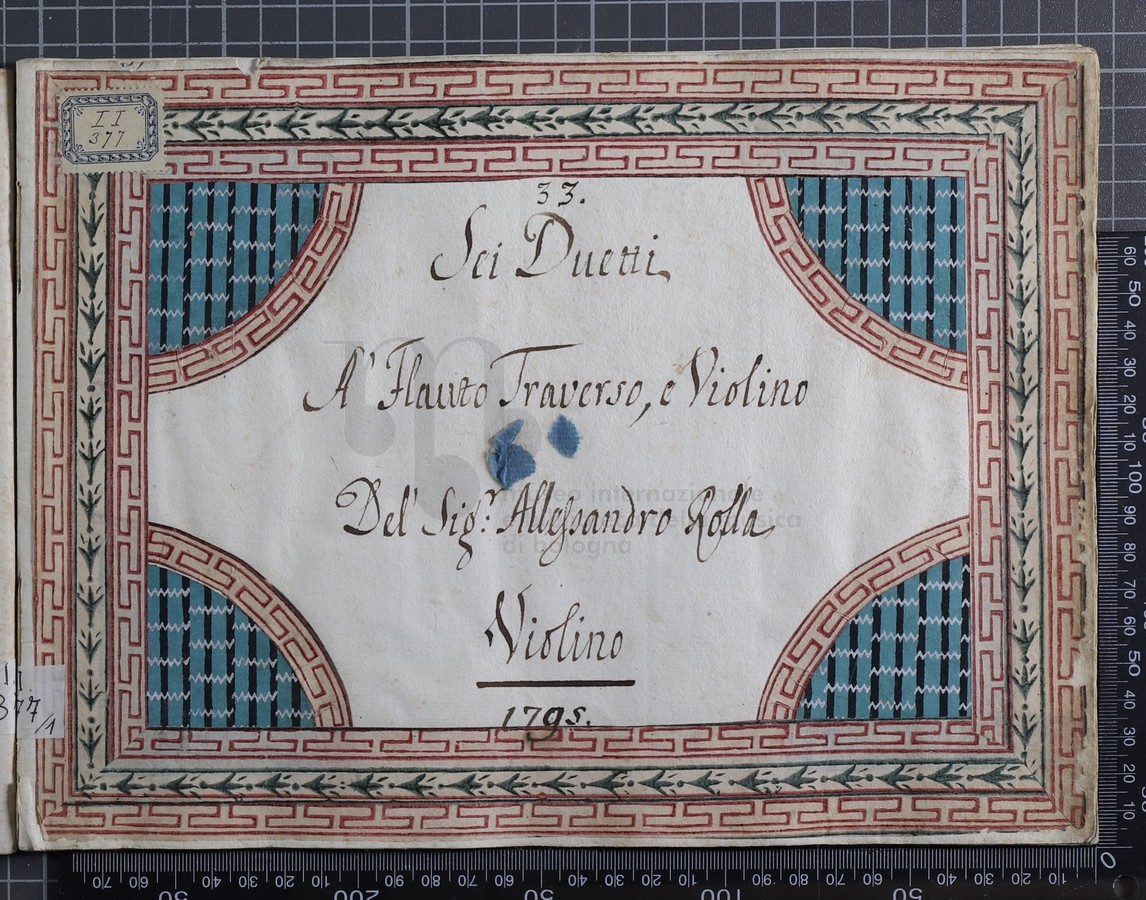 II
377
33.
Sei Duetti
A' Flauto Traverso, e Violino
Del' Sig.r Allessandro Rolla
Violino
1795.
museo internazionale
di bologna
II
377
/1